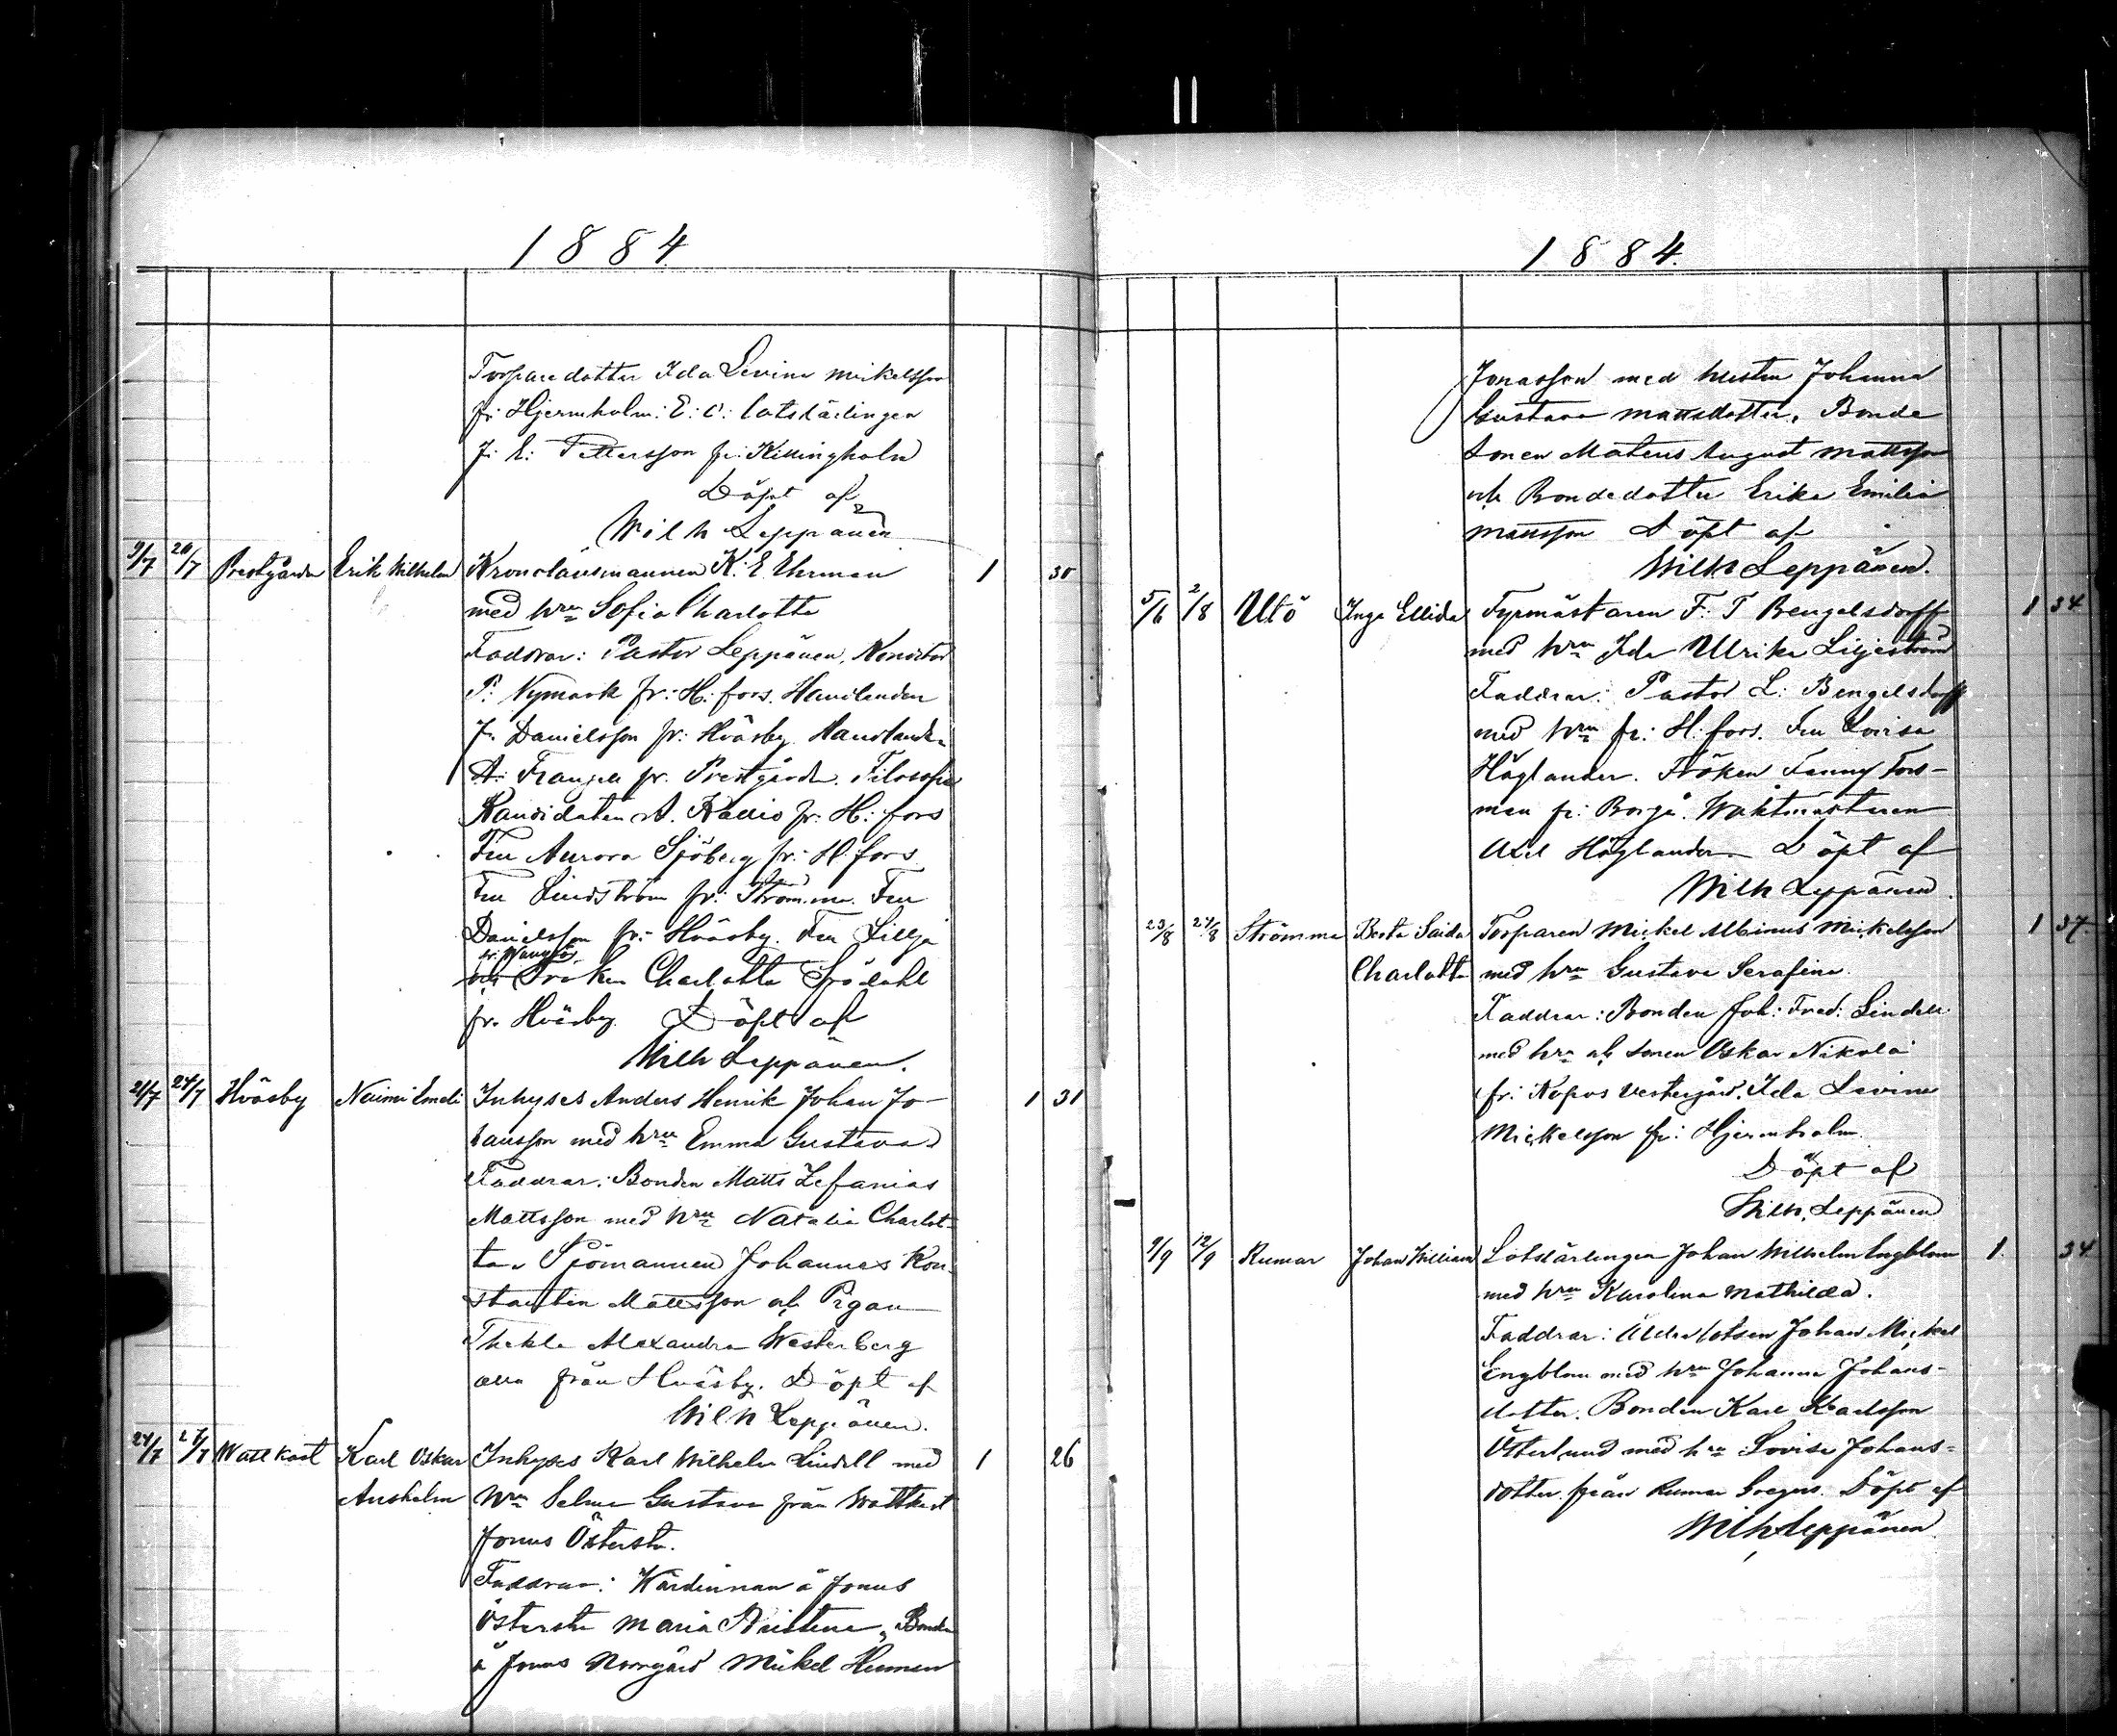 1884.
Torparedotter Ida Levina Mickelsson
fr: Hjermholm: E: O: lotslärlingen
J: E: Pettersson fr: Killingholm
Döpt af
Wilh Leppänen
9/7 20/7 Prestgården Erik Wilhelm Kronolänsmannen K: E. Ehrman 1 30
med hru Sofia Charlotta
Faddrar: Pastor Leppänen,
P: Nymark fr: H:fors. Handlanden
J. Danielsson fr: Hväsby. Handlanden
A: fr. Prestgården. Filosofie
Kandidaten A. fr: H:fors
Fru Aurora Sjöberg fr: H:fors
Fru Lindström fr: Strömma. Fru
Danielsson fr: Hväsby. Fru Lillja
och Fröken Charlotta Sjödahl
fr. Hväsby. Döpt af
Wilh Leppänen.
21/7 24/7 Hväsby Naimi Emeli Inhyses Anders Henrik Johan Jo- 1 31
hansson med hru Emma Gustava
Faddrar: Bonden Matts Zefanias
Mattsson med hru Natalia Charlot-
ta. Sjömannen Johannes Kon-
stantin Mattsson och Pigan
Thekla Alexandra Westerberg
alla från Hväsby. Döpt af
Wilh Leppänen.
24/7 27/7 Wattkast Karl Oskar Inhyses Karl Wilhelm Lindell med 1 26
Anshelm hru Selma Gustava från Wattkast
Jonus Österstu.
Faddrar: Värdinnan å Jonus
Österstu Maria Kristina, Bonden
å Jonus Norrgård Mickel Herman
1884.
Jonasson med hustru Johanna
Gustava Mattsdotter. Bonde
sonen Mateus August Mattsson
och Bondedotter Erika Emilia
Mattsson Döpt af
Wilh Leppänen.
5/6 2/8 Utö Inga Ellida Fyrmästaren F: T Bengelsdorff 1 34
med hru Ida Ulrika Liljeström
Faddrar: Pastor L: Bengelsdorff
med hru fr: H:fors. Fru Lovisa
Höglander. Fröken Fanny Fors-
man fr: Borgå. Waktmästaren
Axel Höglander Döpt af
Wilh Leppänen.
23/8 24/8 Strömma Berta Saida Torparen Mickel Albinus Mickelsson 1 37
Charlotta med hru Gustava Serafina.
Faddrar: Bonden Joh: Fred: Lindell
med hru och sonen Oskar Nikolai
fr: Kopos Westergård. Ida Levina
Mickelsson fr: Hjermholm.
Döpt af
Wilh. Leppänen
9/9 12/9 Rumar Johan William Lotslärlingen Johan Wilhelm Engblom 1. 34
med hru Karolina Mathilda.
Faddrar: Äldre lotsen Johan Mickel
Engblom med hru Johanna Johans-
dotter. Bonden Karl Karlsson
Österlund med hru Lovisa Johans-
dotter från Rumar Gregers. Döpt af
Wilh Leppänen